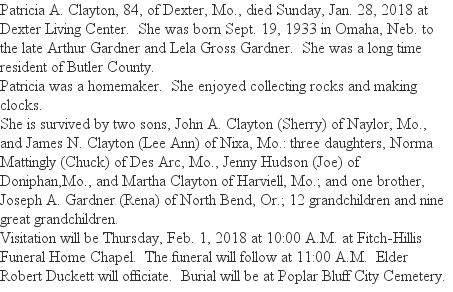 Patricia A. Clayton, 84, of Dexter, Mo., died Sunday, Jan. 28, 2018 at
Dexter Living Center.  She was born Sept. 19, 1933 in Omaha, Neb. to
the late Arthur Gardner and Lela Gross Gardner.  She was a long time
resident of Butler County.
Patricia was a homemaker.  She enjoyed collecting rocks and making
clocks.
She is survived by two sons, John A. Clayton (Sherry) of Naylor, Mo.,
and James N. Clayton (Lee Ann) of Nixa, Mo.: three daughters, Norma
Mattingly (Chuck) of Des Arc, Mo., Jenny Hudson (Joe) of
Doniphan,Mo., and Martha Clayton of Harviell, Mo.; and one brother,
Joseph A. Gardner (Rena) of North Bend, Or.; 12 grandchildren and nine
great grandchildren.
Visitation will be Thursday, Feb. 1, 2018 at 10:00 A.M. at Fitch-Hillis
Funeral Home Chapel.  The funeral will follow at 11:00 A.M.  Elder
Robert Duckett will officiate.  Burial will be at Poplar Bluff City Cemetery.